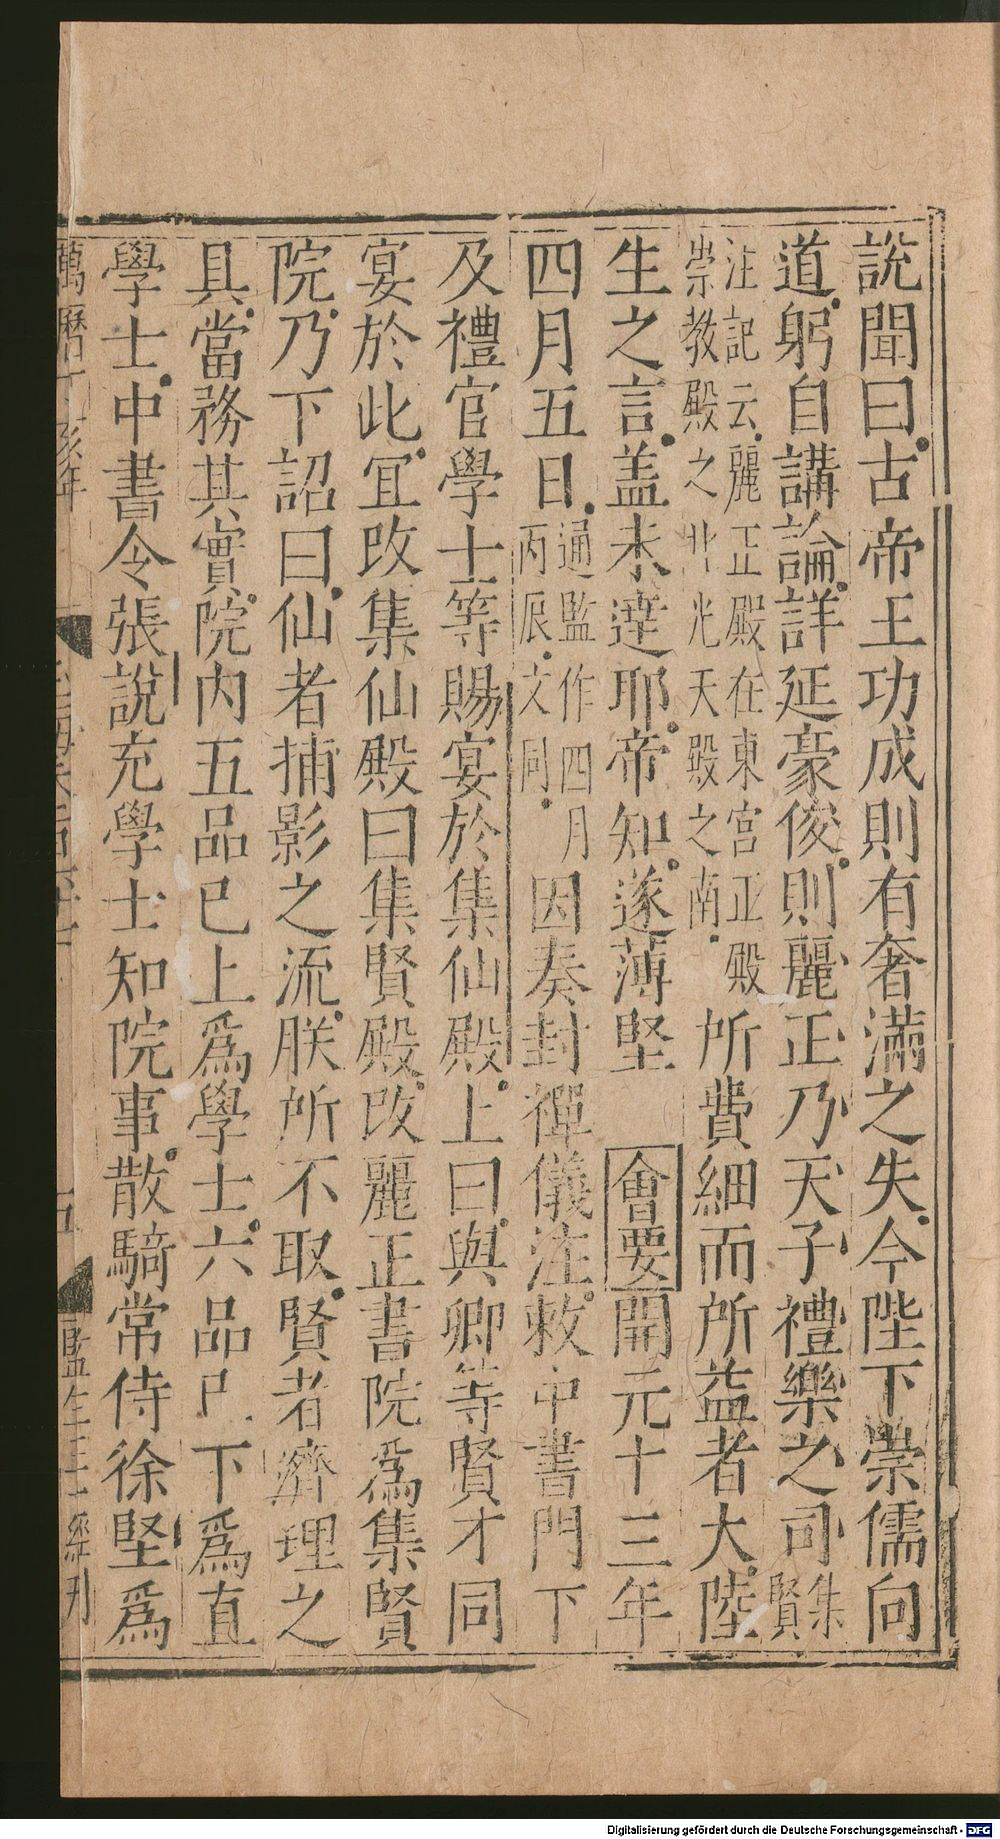 説聞曰古帝王功成則有奢滿之失今陛下崇儒向
道躬自講論詳延豪俊則麗正乃天子禮樂之司集賢
注記云麗正殿在東宮正殿崇教殿之北光天殿之南所費細而所益者大陸
生之言蓋未達耶帝知遂薄堅 會要開元十三年
四月五日通監作四月丙辰文同因奏封禪儀注敕中書門下
及禮官學士等賜宴於集仙殿上曰與卿等賢才同
宴於此宜改集仙殿曰集賢殿改麗正書院爲集賢
院乃下詔曰仙者捕影之流朕所不取賢者濟理之
具當務其實院内五品已上爲學士六品已下爲直
學士中書令張説充學士知院事散騎常侍徐堅爲
萬曆丁亥年 五 監生王經刋
Digitalisierung gefördert durch die Deutsche Forschungsgemeinschaft - DFG